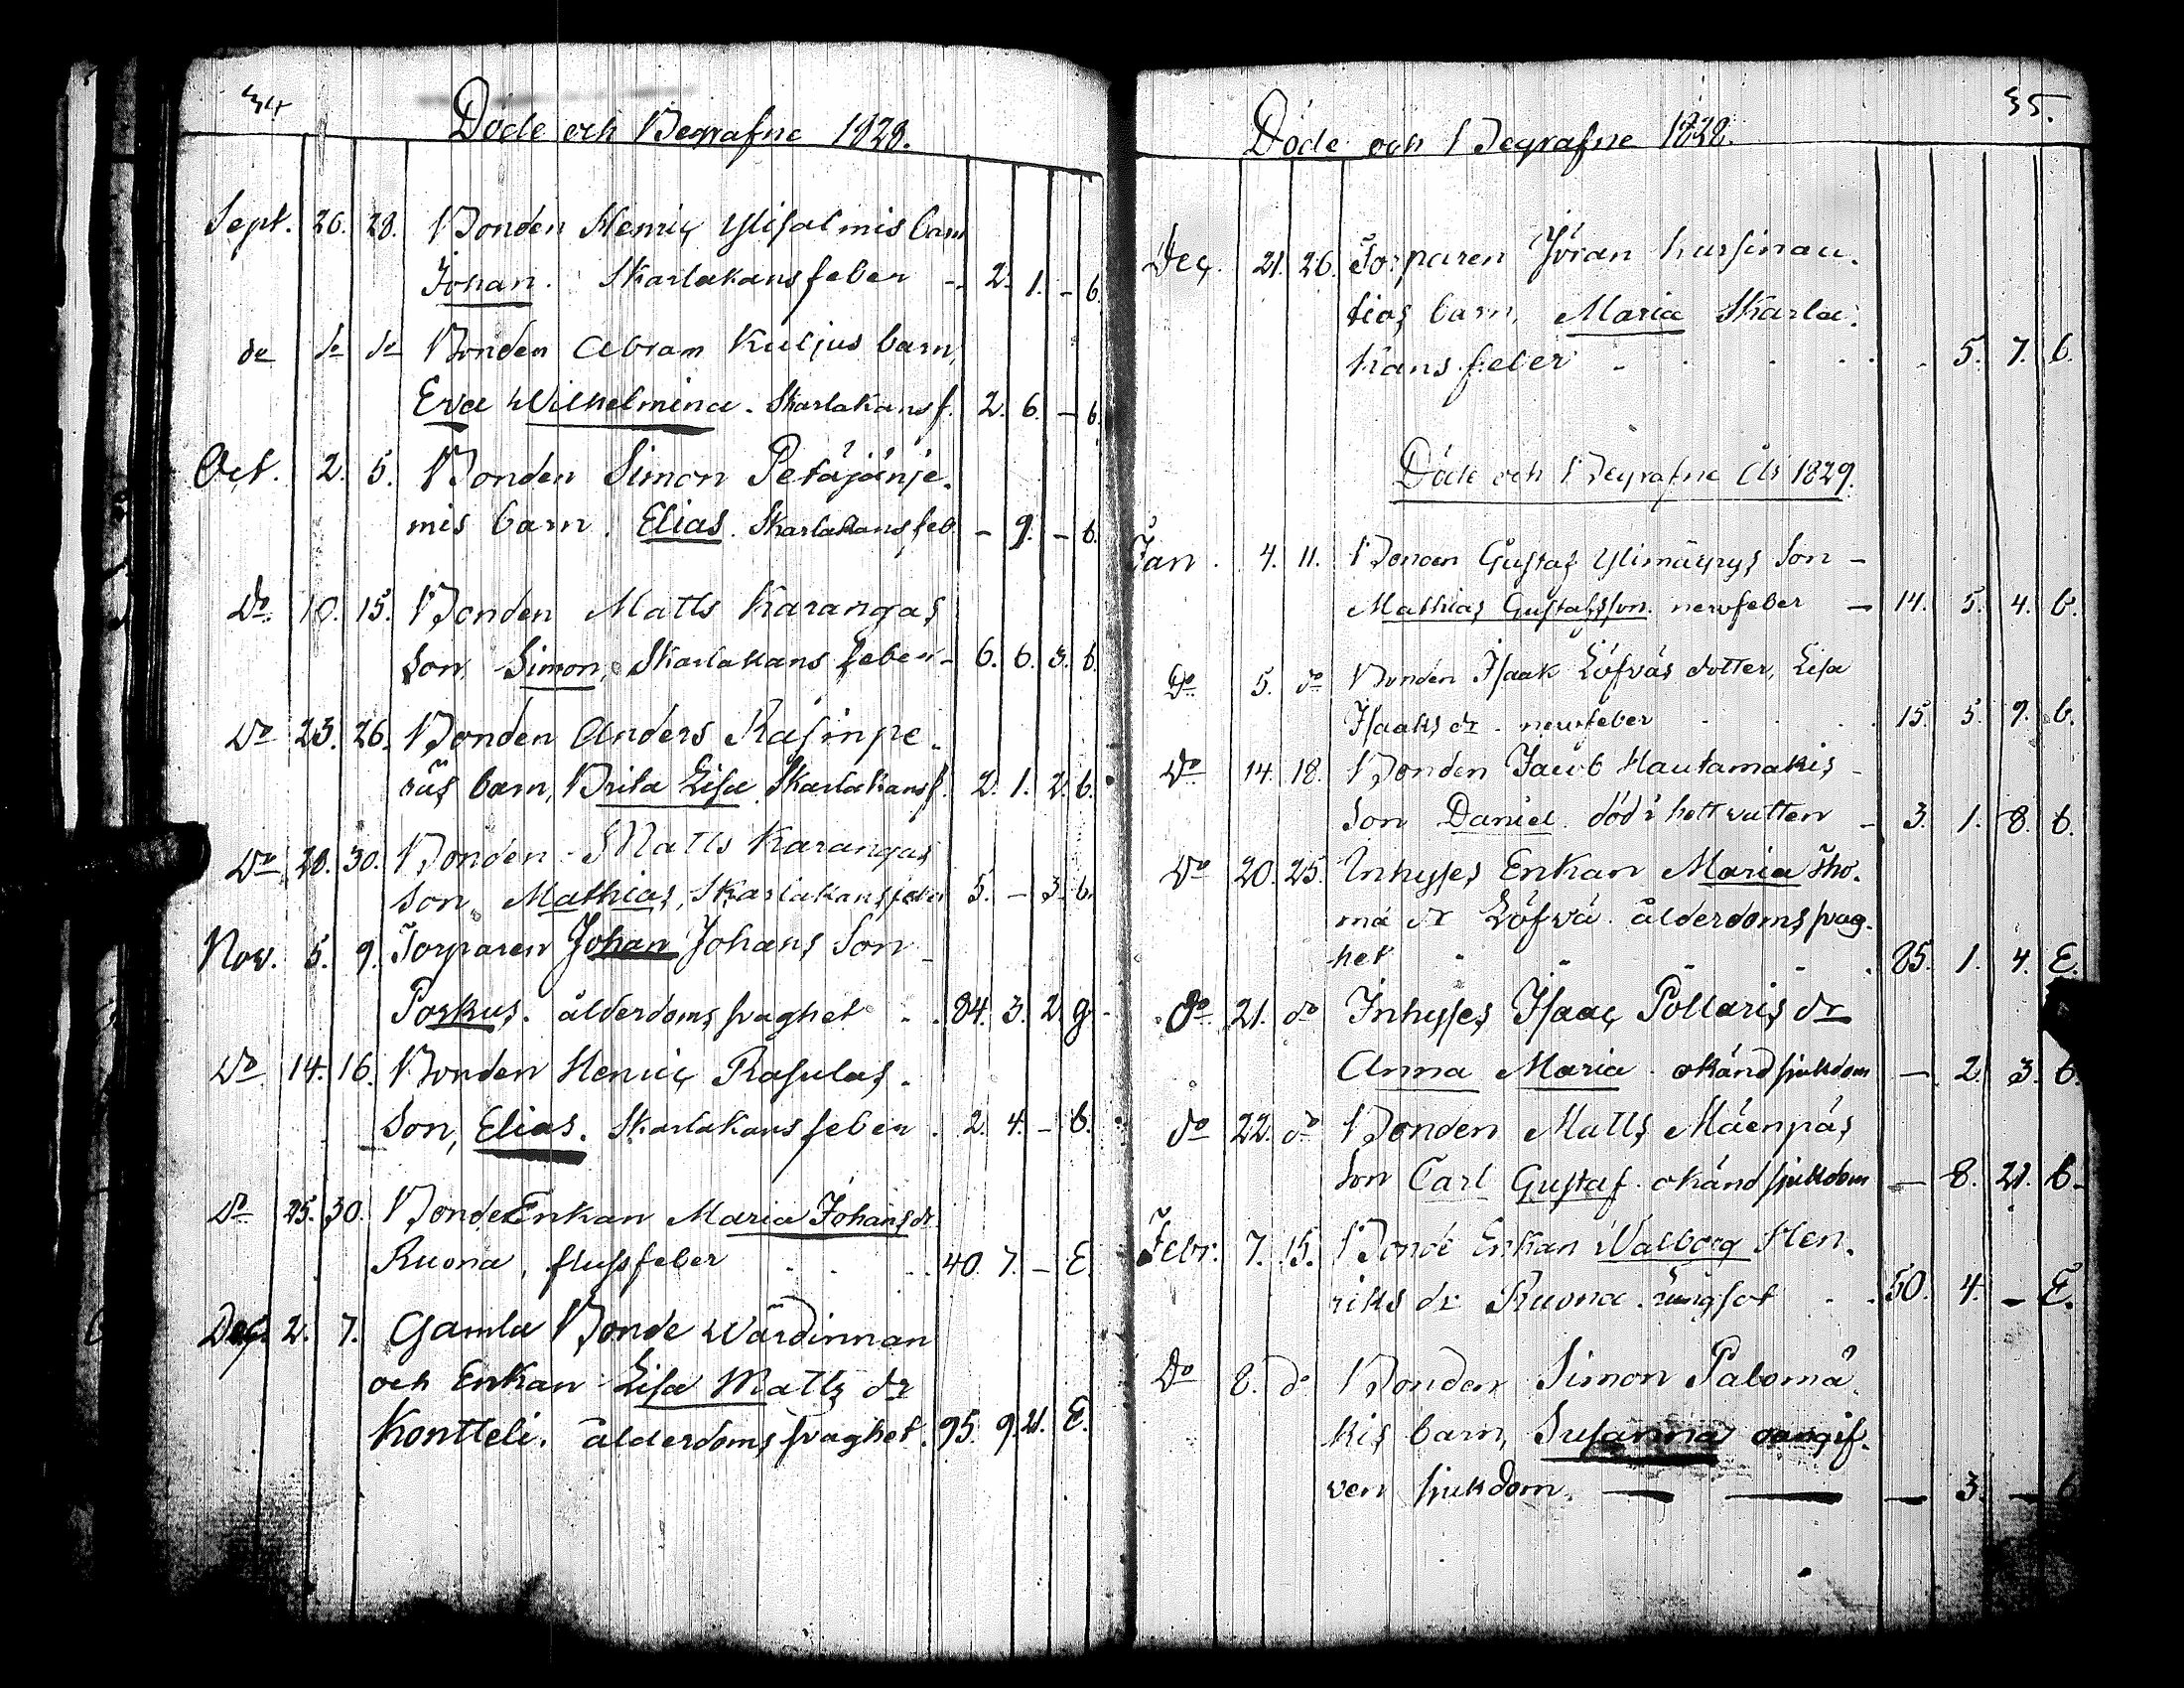 34
Döde och Begrafne 1828.
Sept. 26. 28. Bonden Henric Ylisalmis barn
Johan. Skarlakansfeber - 2. 1. - b.
do do do Bonden Abram Kuljus barn,
Eva Wilhelmina. Skarlakansf. 2. 6. - b.
Oct. 2. 5. Bonden Simon Petäjänje.
mis barn. Elias. Skarlakansfeb. - 9. - b.
Do. 10. 15. Bonden Matts Karangas
Son, Simon, Skarlakans feber - 6. 6. 3. b.
Do 23. 26. Bonden Anders Rasinpe.
räs barn, Brita Lisa Skarlakansf. 2. 1. 2. b.
Do 28. 30. Bonden Matts Karangas
Son, Mathias, Skarlakansfeber 5. - 3. b.
Nov. 5. 9. Torparen Johan Johans Son
Porkus. ålderdoms svaghet . . 84. 3. 2. g.
Do 14. 16. Bonden Henric Rasulas.
Son, Elias. Skarlakans feber . 2. 4. - b.
Do 25. 30. Bonde Enkan Maria Johans dr
Ruona, flussfeber . . . 40. 7. - E.
Dec. 2. 7. Gamla Bonde Wärdinnan
och Enkan Lisa Matts dr
Kontteli. ålderdoms svaghet. 95. 9. 21. E.
35.
Döde och Begrafne 1828.
Dec. 21. 26. Torparen Jöran
tios barn, Maria Skarla.
kans feber . . . . . 5. 7. b.
Döde och Begrafne År 1829.
Jan. 4. 11. Bonden Gustaf Ylimäyrys Son -
Mathias Gustafsson. nervfeber - 14. 5. 4. b.
Do 5. do Bonden Isaak Löfväs dotter, Lisa
Isaaks dr. nervfeber . . . 15. 5. 9. b.
Do 14. 18. Bonden Jacob Hautamakis -
Son Daniel. död i hett vatten - 3. 1. 8. b.
Do 20. 25. Inhyses Enkan Maria Tho.
mä dr Löfvä. ålderdoms svag.
het . . . . . 85. 1. 4. E.
do 21. do Inhyses Isaac Pollaris dr
Anna Maria. okänd sjukdom - 2. 3. b.
do 22. do Bonden Matts Mäenpäs
Son Carl Gustaf. okänd sjukdom - 8. 21. b.
Febr. 7. 15. Bonde Enkan Walborg Hen.
riks dr Ruona. . . 50. 4. - E.
Do 8. do Bonden Simon Palomä.
kis barn, Susanna oangif.
ven sjukdom. - - - 3. -